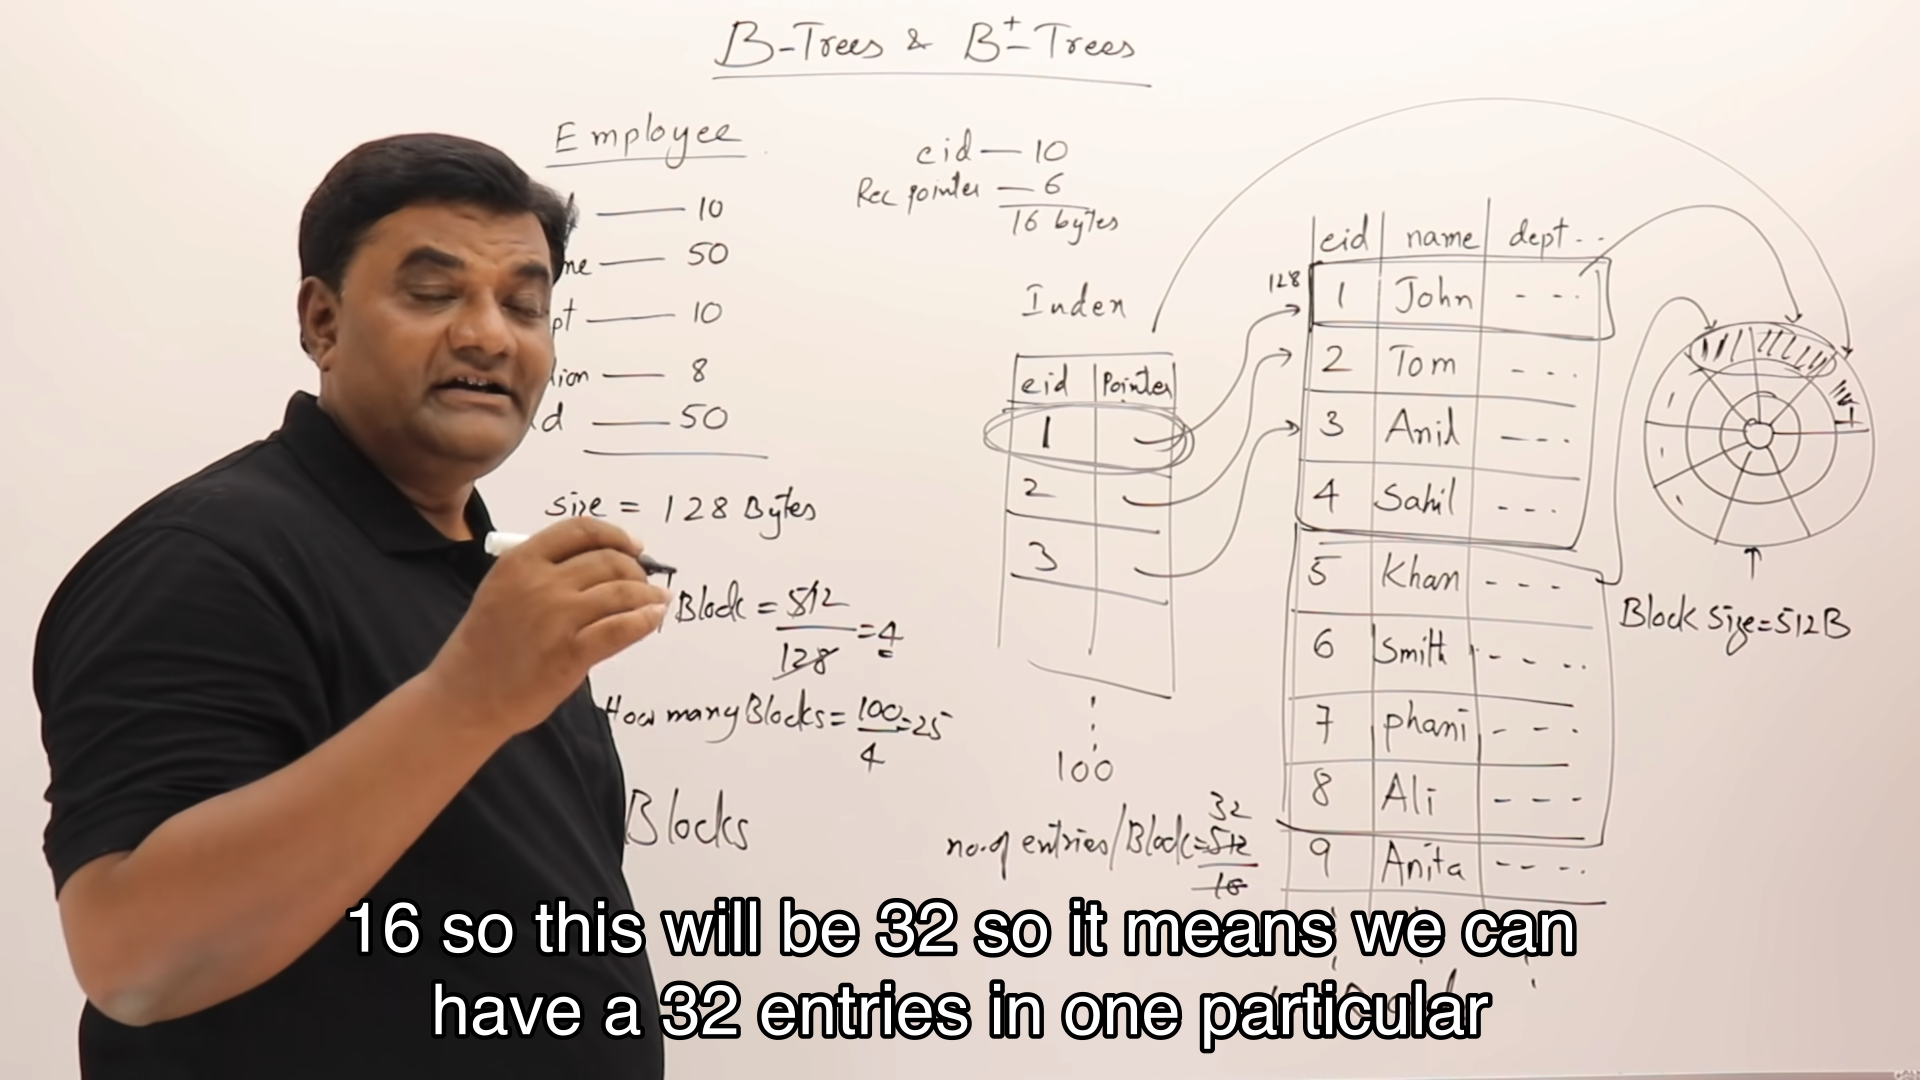 B-Trees & B+-Trees
Employee
10
50
10
8
50
size = 128 Bytes
Block = 512
128
=4
How many Blocks = 100 = 25
4
Blocks
eid — 10
Rec pointer — 6
16 bytes
Index
eid Pointer
1
2
3
100
no.of entries/Block = 512
16
32
128
eid name dept ..
1 John - - -
2 Tom - - -
3 Anil - - -
4 Sahil - - -
5 Khan - - -
6 Smith - - - -
7 phani - - -
8 Ali - - -
9 Anita - - - -
Block Size = 512B
16 so this will be 32 so it means we can
have a 32 entries in one particular